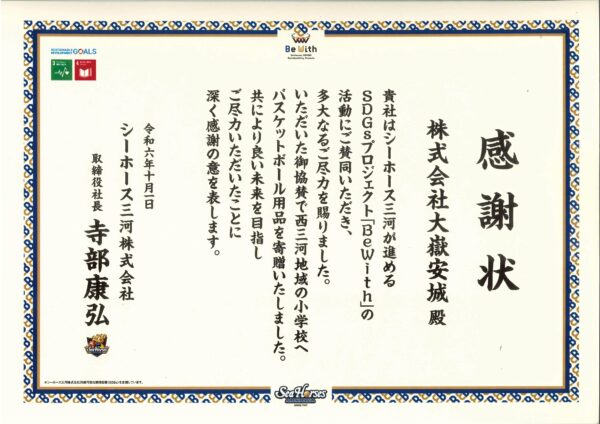 感謝状
株式会社大嶽安城 殿
貴社はシーホース三河が進める
SDGsプロジェクト「BeWith」の
活動にご賛同いただき、
多大なるご尽力を賜りました。
いただいた御協賛で西三河地域の小学校へ
バスケットボール用品を寄贈いたしました。
共により良い未来を目指し
ご尽力いただいたことに
深く感謝の意を表します。
令和六年十月一日
シーホース三河株式会社
取締役社長 寺部康弘
SUSTAINABLE DEVELOPMENT GOALS
3
4
Be With
SeaHorses